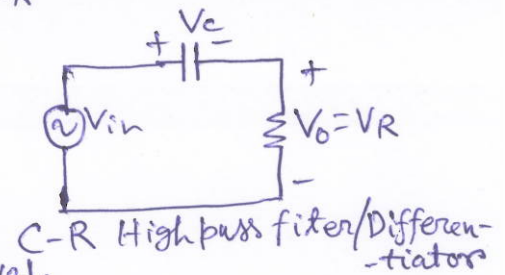 Vc
+ -
+
Vin
V0=VR
-
C-R Highpass fiter/Differen-
-tiator